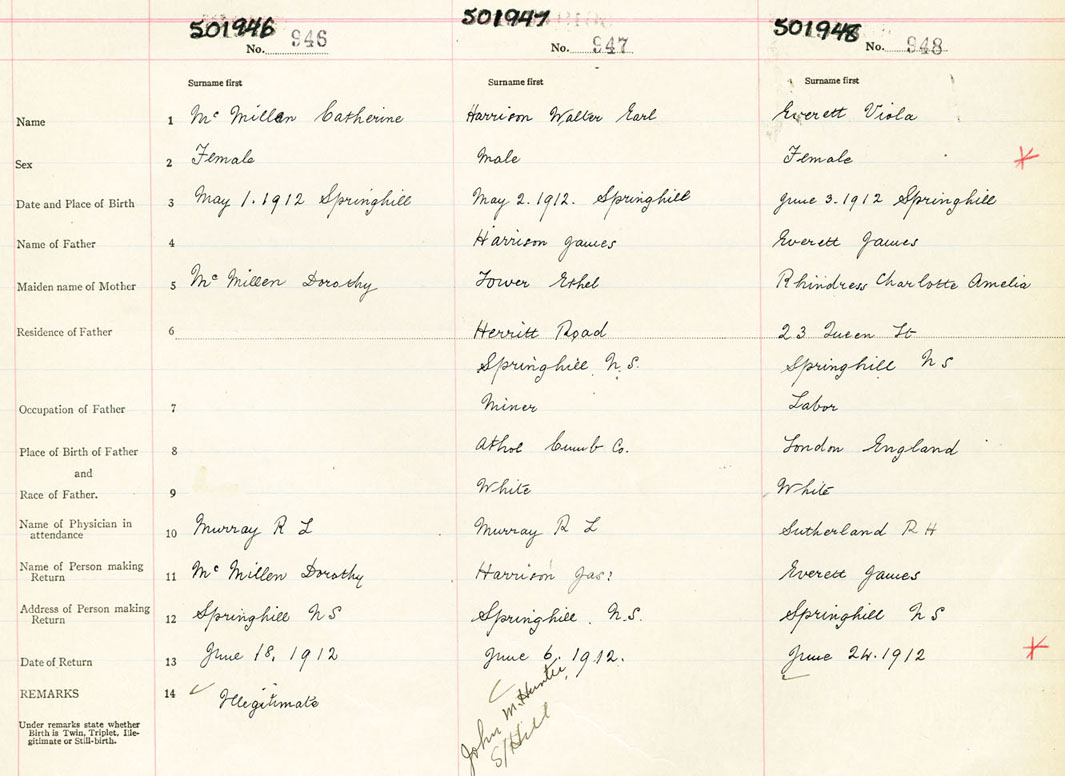 501946 501947 501948
No. 946 No. 947 No. 948
Surname first Surname first Surname first
Name 1 Mc Millen Catherine Harrison Walter Earl Everett Viola
Sex 2 Female Male Female
Date and Place of Birth 3 May 1. 1912 Springhill May 2. 1912. Springhill June 3. 1912 Springhill
Name of Father 4 Harrison James Everett James
Maiden name of Mother 5 Mc Millen Dorothy Tower Ethel Rhindress Charlotte Amelia
Residence of Father 6 Herritt Road 23 Queen St
Springhill N.S. Springhill N S
Occupation of Father 7 Miner Labor
Place of Birth of Father 8 Athol Cumb Co. London England
and
Race of Father. 9 White White
Name of Physician in
attendance 10 Murray R L Murray R L Sutherland R H
Name of Person making
Return 11 Mc Millen Dorothy Harrison Jas: Everett James
Address of Person making
Return 12 Springhill N S Springhill. N.S. Springhill N S
Date of Return 13 June 18, 1912 June 6. 1912. June 24. 1912
REMARKS 14 Illegitimate
John M. Hunter
S/Hill
Under remarks state whether
Birth is Twin, Triplet, Ille-
gitimate or Still-birth.